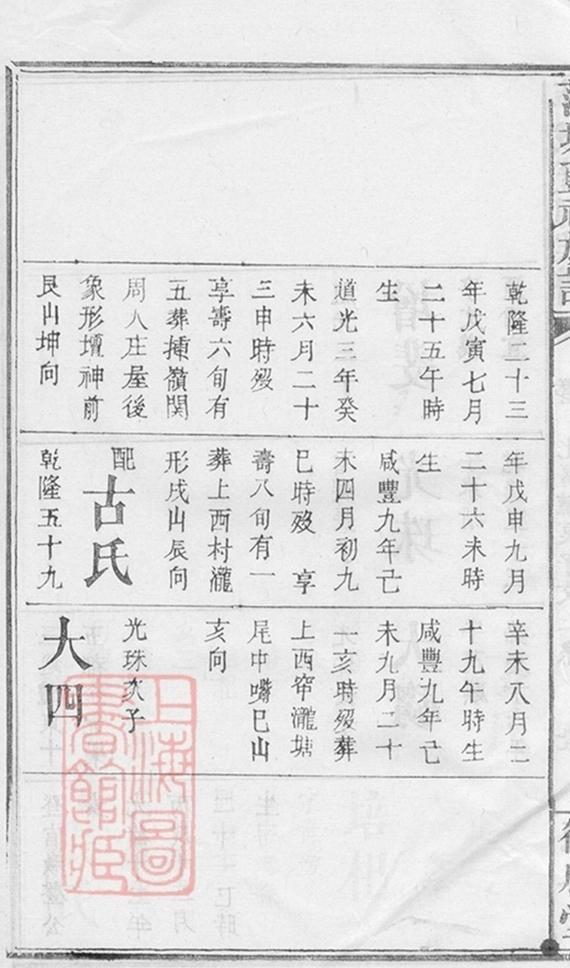 乾隆二十三
年戊寅七月
二十五午時
生
道光三年癸
未六月二十
三申時歿
享壽六旬有
五葬揷嶺関
周人庄屋後
象形壇神前
艮山坤向
年戊申九月
二十六未時
生
咸豐九年己
未四月初九
巳時歿 享
壽八旬有一
葬上西村瀧
形戌山辰向
配古氏
乾隆五十九
辛未八月二
十九午時生
咸豐九年己
未九月二十
一亥時歿葬
上西帘瀧塘
尾中嘴巳山
亥向
光珠次子
大四
上海圖
書館藏